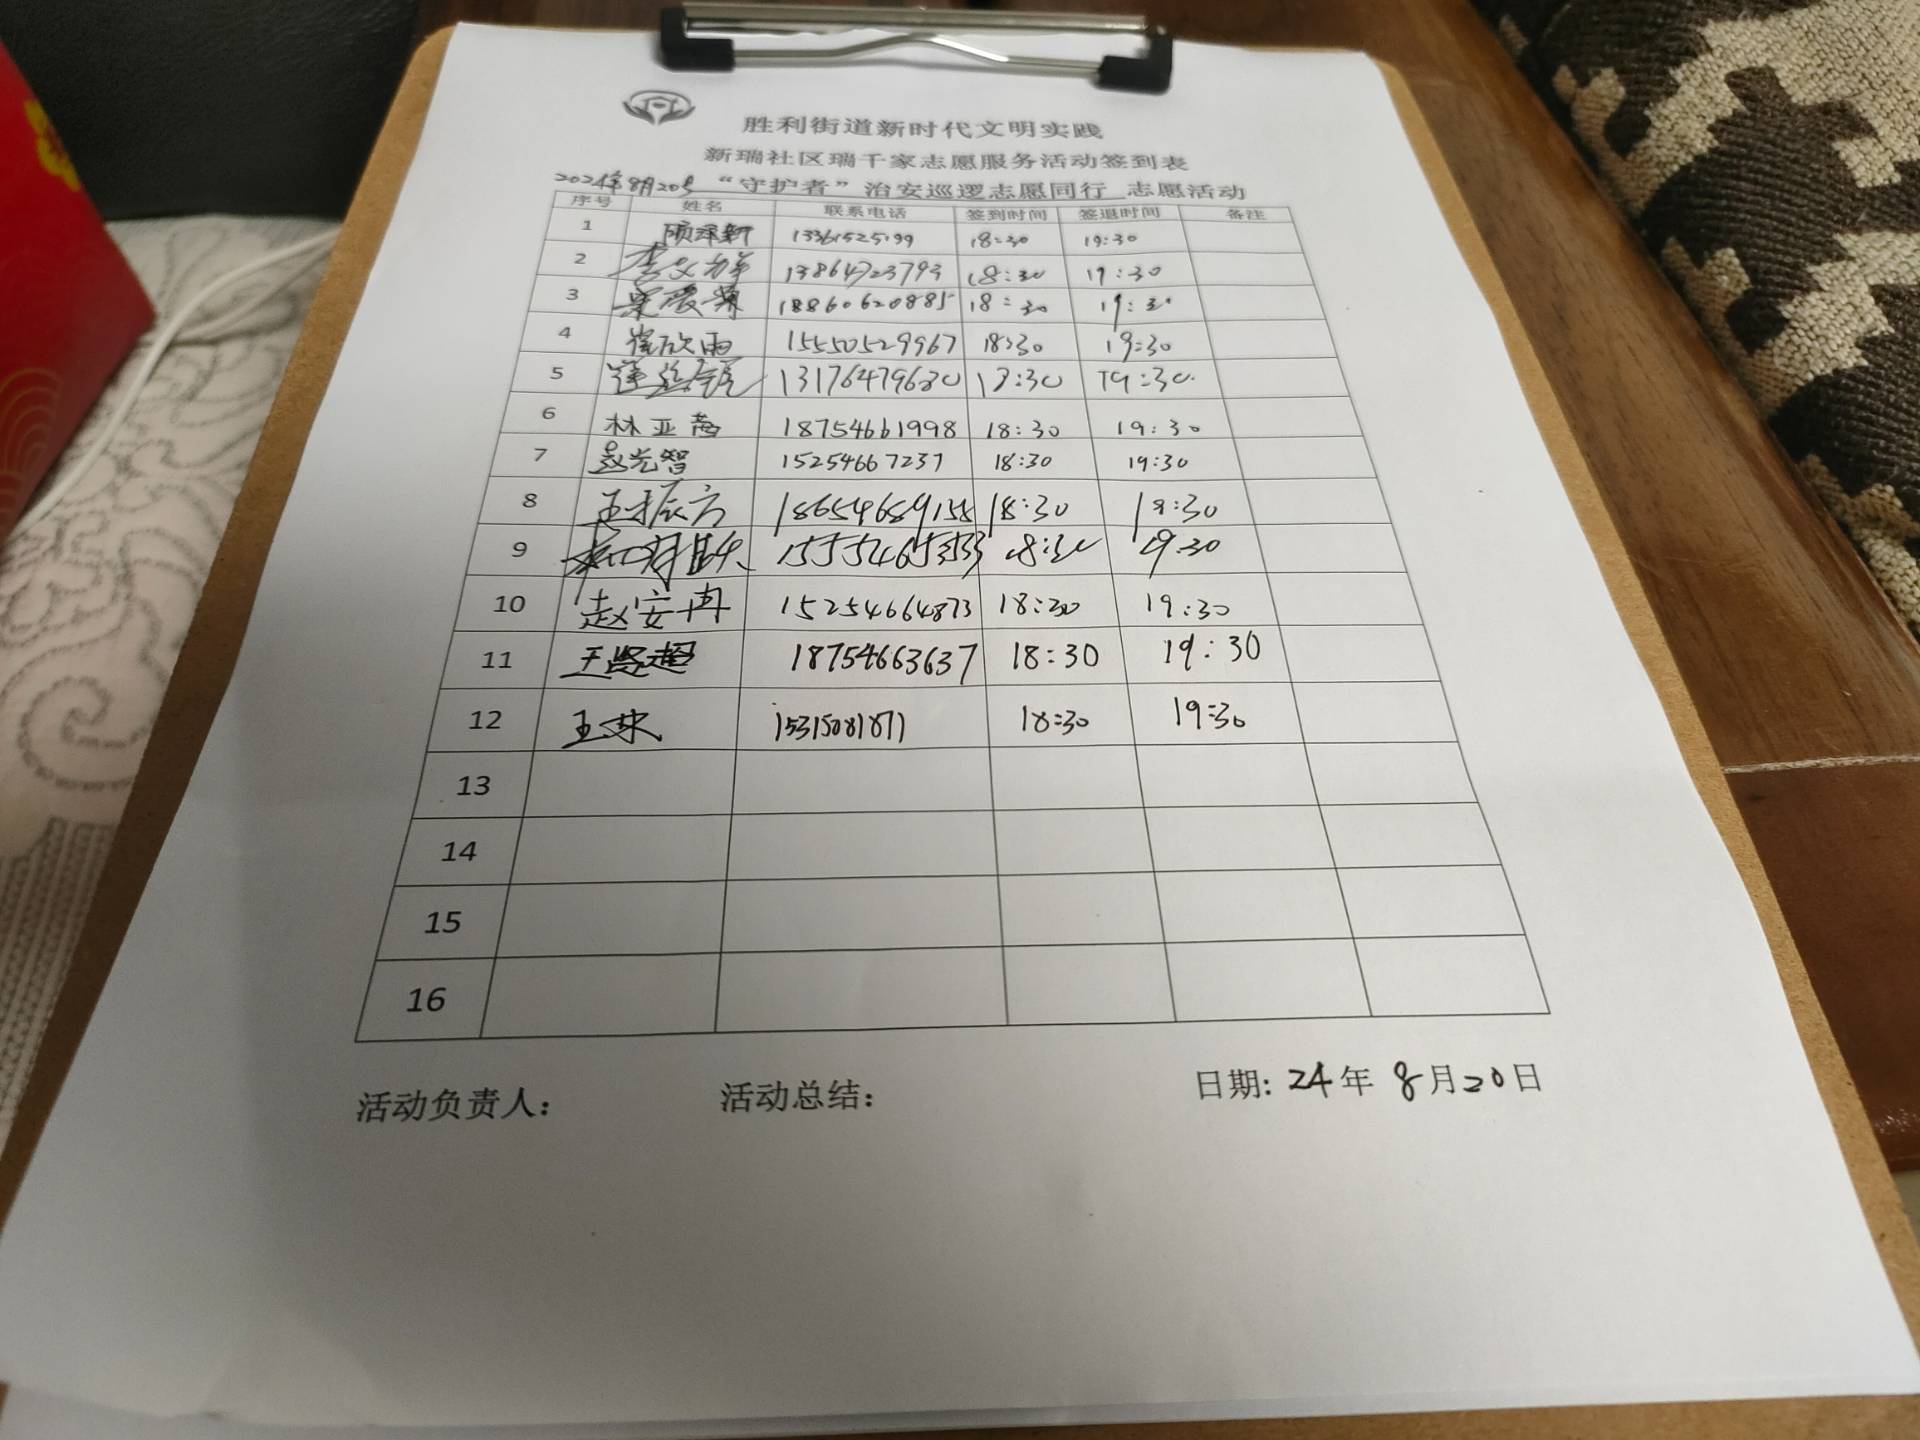 胜利街道新时代文明实践
新瑞社区瑞千家志愿服务活动签到表
2024年8月20号 “守护者”治安巡逻志愿同行 志愿活动
序号 姓名 联系电话 签到时间 签退时间 备注
1 18:30 19:30
2 13864723793 18:30 19:30
3 18860620885 18:30 19:30
4 崔欣雨 15550529967 18:30 19:30
5 13176479680 18:30 19:30
6 林亚茜 18754661998 18:30 19:30
7 赵光智 15254667237 18:30 19:30
8 王振方 18654689158 18:30 19:30
9 18:30 19:30
10 赵安冉 15254664873 18:30 19:30
11 王贤超 18754663637 18:30 19:30
12 王 15315081871 18:30 19:30
13
14
15
16
活动负责人: 活动总结: 日期: 24年 8月20日